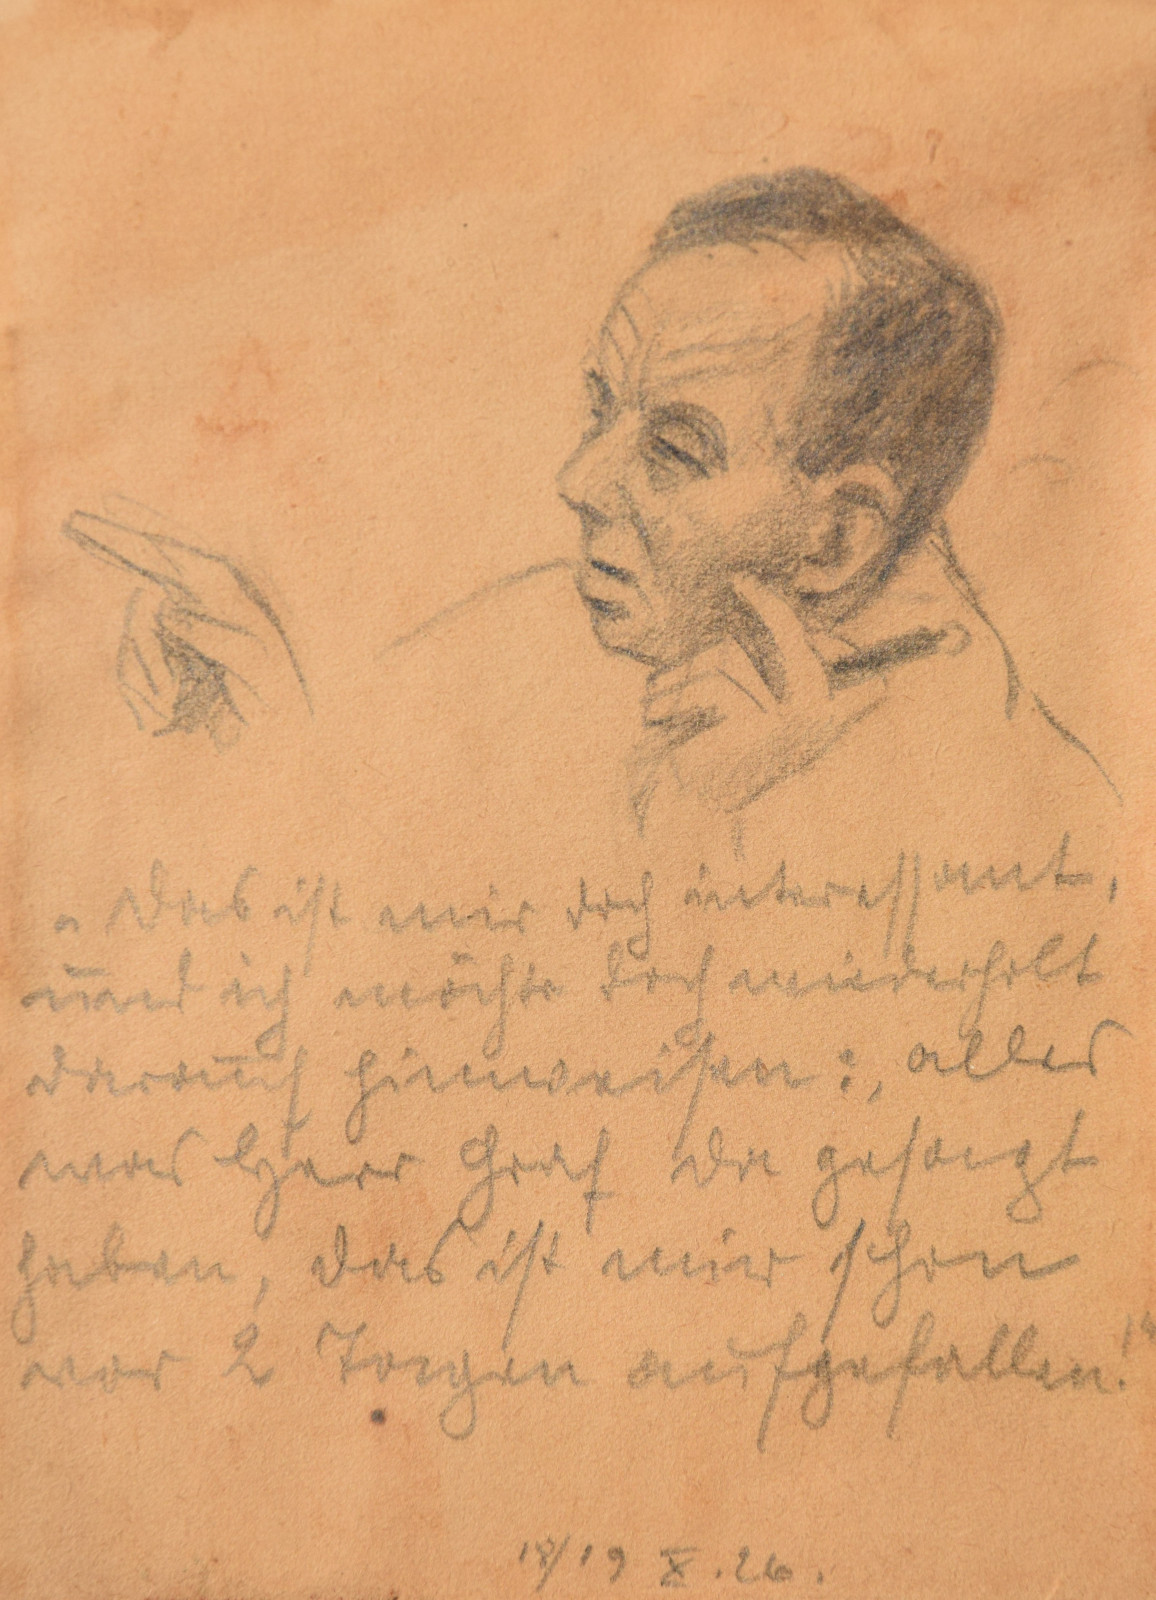 „Das ist mir doch interessant,
und ich möchte doch wiederholt
darauf hinweisen:, alles
was Herr Graf da gesagt
haben, das ist mir schon
vor 2 Tagen aufgefallen!"
18/19 X. 26.